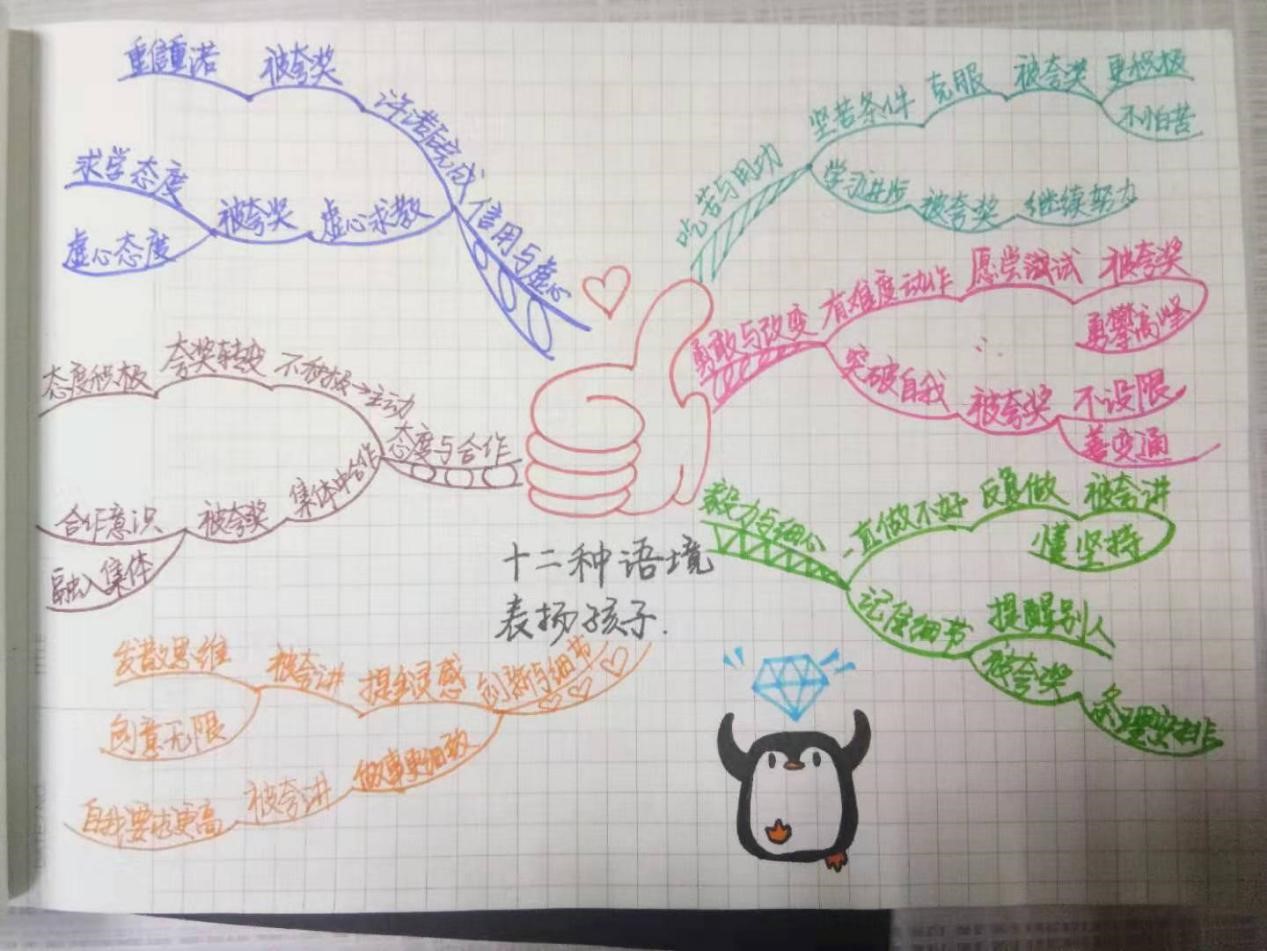 十二种语境
表扬孩子.
吃苦与用功
坚苦条件
克服
被夸奖
更积极
不怕苦
学习进步
被夸奖
继续努力
勇敢与改变
有难度动作
愿尝试
被夸奖
勇攀高峰
突破自我
被夸奖
不设限
善变通
毅力与细心
一直做不好
反复做
被夸讲
懂坚持
记住细节
提醒别人
被夸奖
条理安排
创新与细节
提金灵感
被夸讲
发散思维
创意无限
做事更细致
被夸讲
自我要求更高
态度与合作
不积极→主动
夸奖转变
态度积极
集体中合作
被夸奖
合作意识
融入集体
信用与虚心
许诺后完成
被夸奖
重信重诺
虚心求教
被夸奖
求学态度
虚心态度